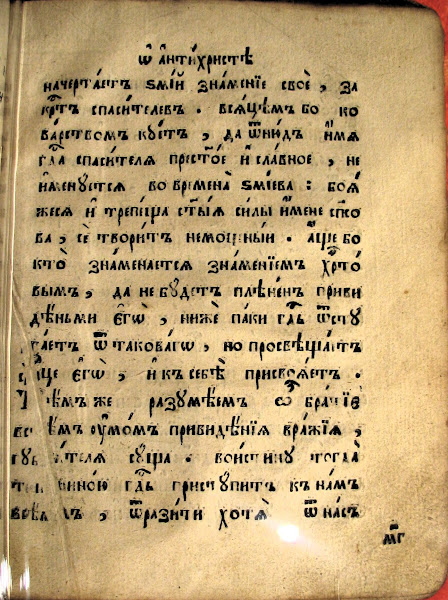 ѿ а҆нтїхристѣ
начертаетъ ѕмі́й зна́менїе своѐ, за
крⷭ҇тъ спаси́телевъ. вся́цемъ бо ко
ва́рствомъ куе́тъ, да ѿни́дъ и҆́мя
гдⷭ҇а спаси́теля престо́е и҆ сла́вное, не
и҆менуется во времена̀ ѕмі́ева: боя́
жеся и҆ трепе́ща ст҃ы́я си́лы и҆́мене сп҃со
ва, сѐ твори́тъ немощны́и. а҆́ще бо
кто̀ зна́менается зна́менїемъ хрⷭ҇то́
вымъ, да не бу́детъ плѣне́нъ приви
дѣ́ньми є҆гѡ̀, ниже па́ки гдⷭ҇ь ѿсту
па́етъ ѿ такова́гѡ, но просвѣща́етъ
є҆гѡ̀, и҆ къ себѣ̀ присвоя́етъ.
же разумѣ́емъ
ѹ҆мо́мъ привидѣ́нїя вра́жїя,
су́ща. вои́стину тогда̀
гдⷭ҇ь присту́питъ къ на́мъ
ѿрази́ти хотя̀ ѿ на́съ
м҃г